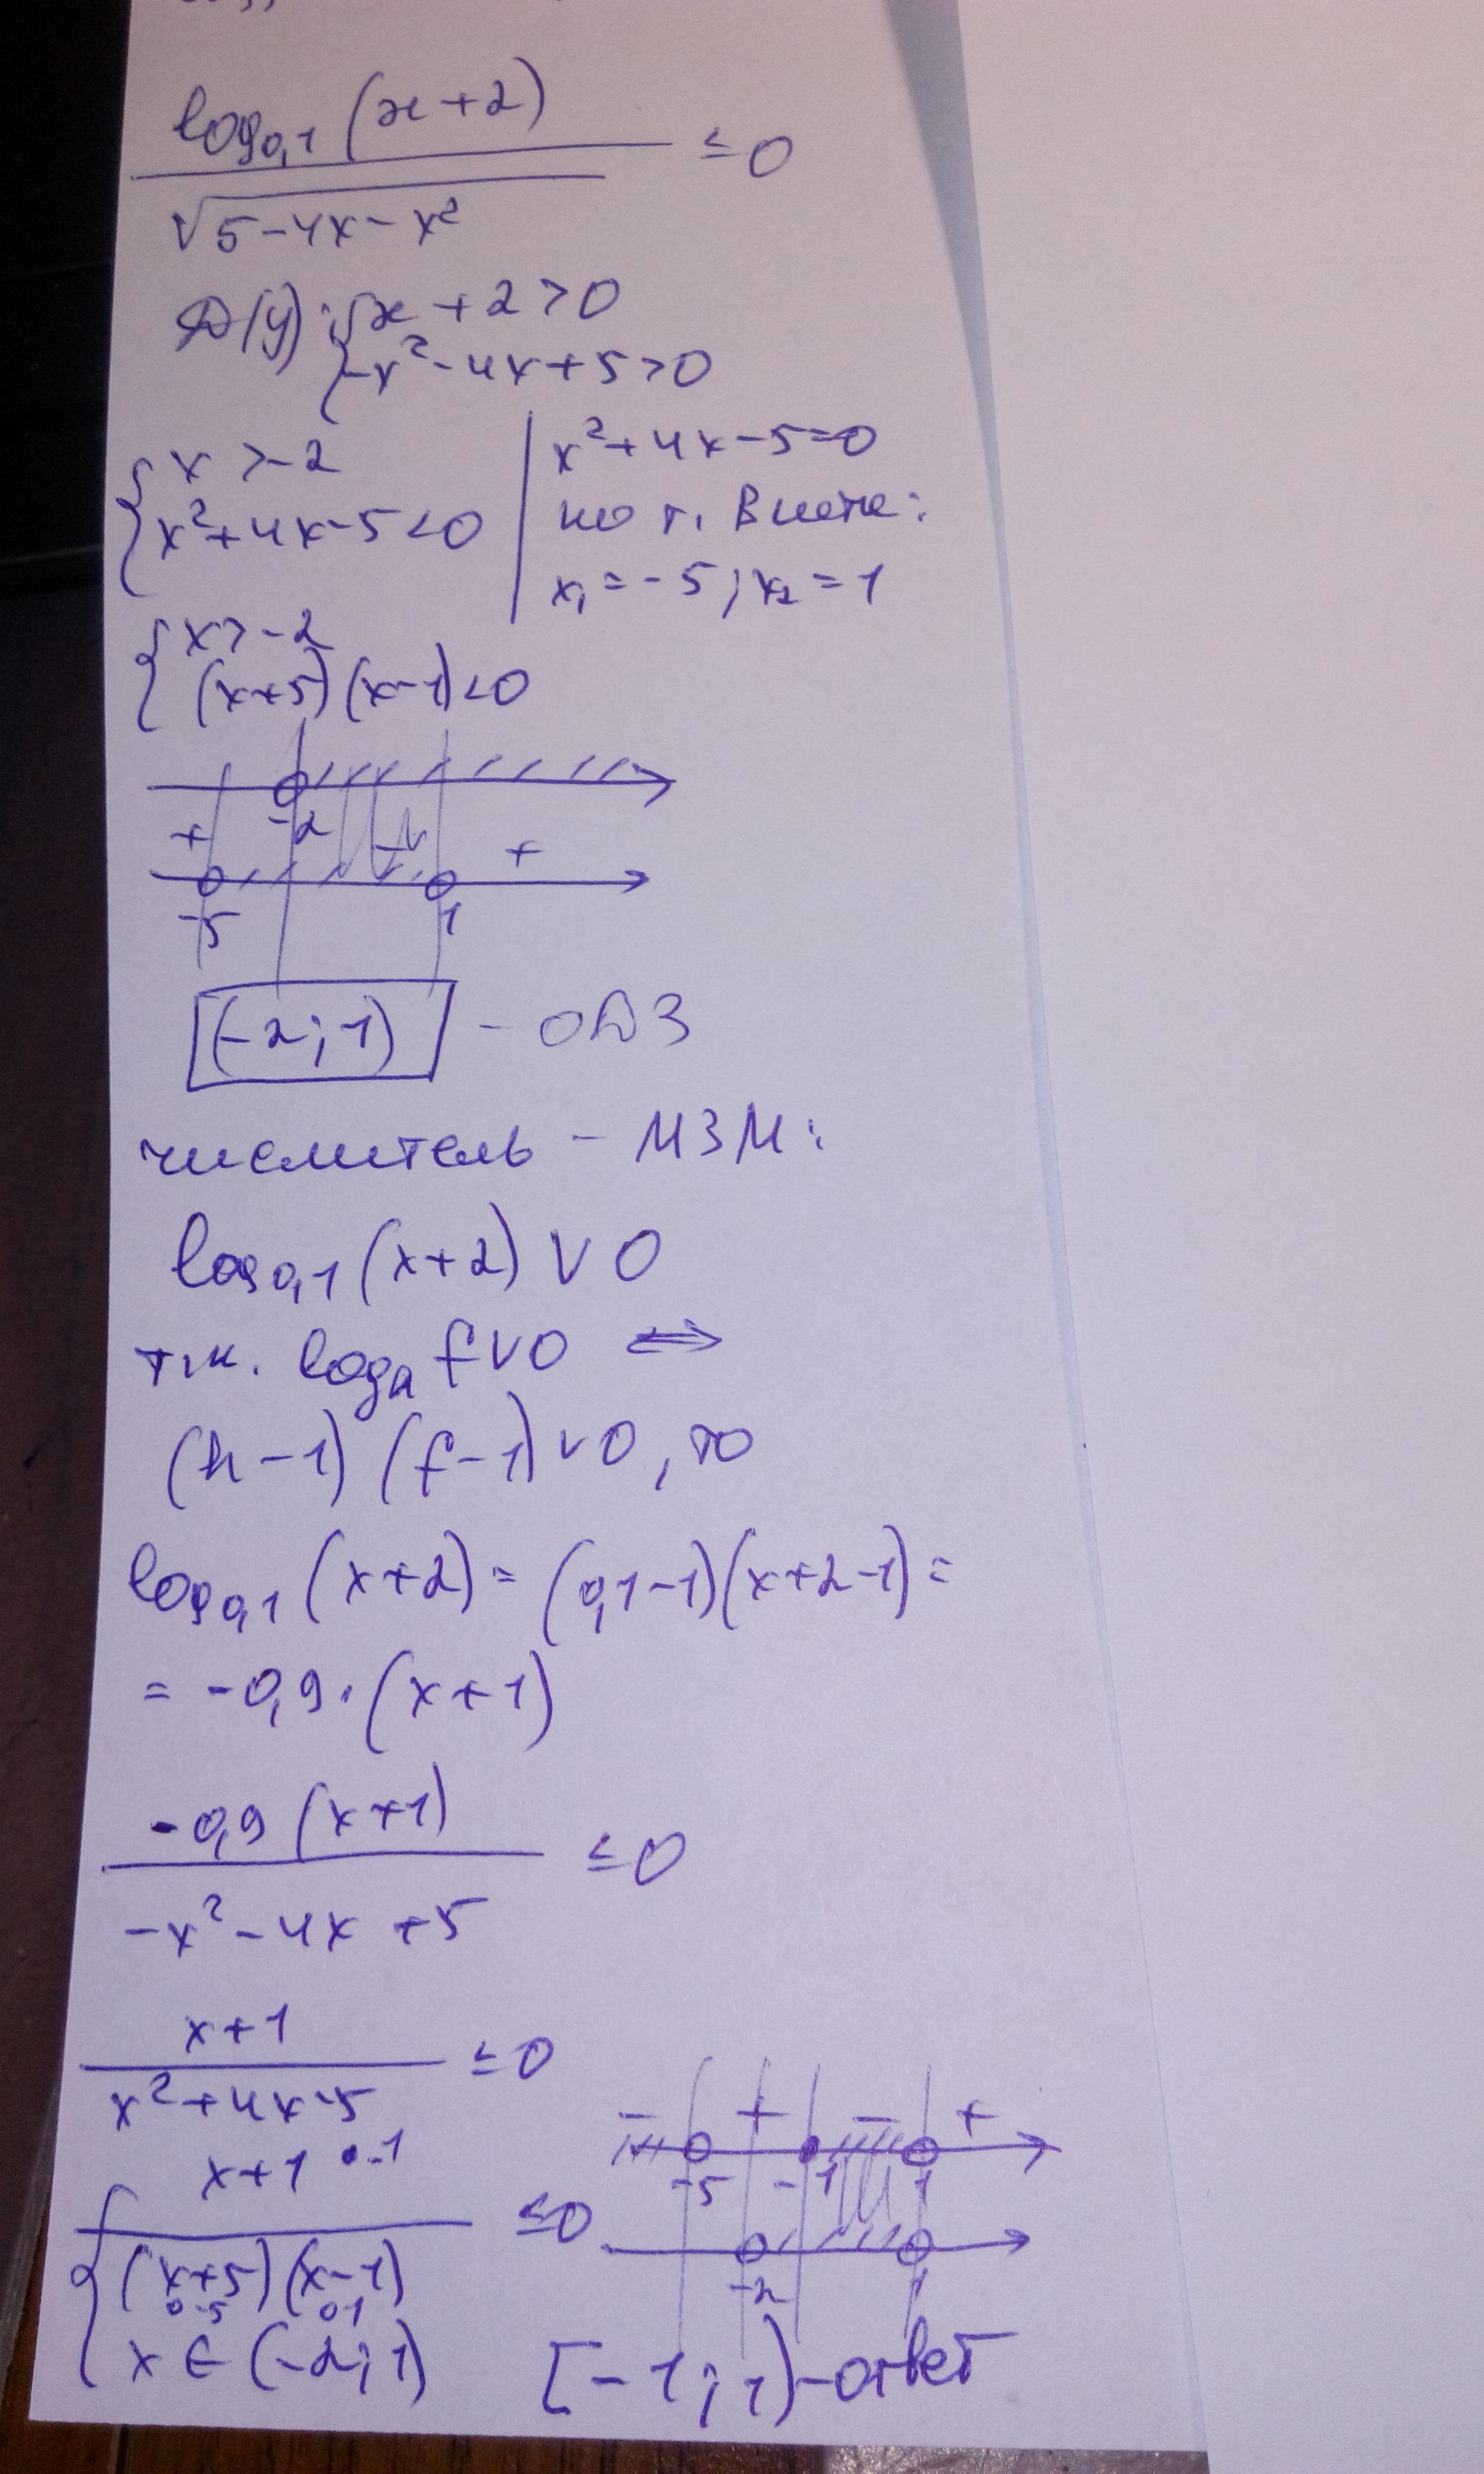 log₀,₁(x+2)
≤0
√5-4x-x²
D(y): {x+2>0
-x²-4x+5>0
{x>-2
x²+4x-5<0
x²+4x-5=0
по т. Виета:
x₁=-5; x₂=1
{x>-2
(x+5)(x-1)<0
-2
+ - +
-5 1
(-2;1) - ОДЗ
числитель - МЗМ:
log₀,₁(x+2)∨0
т.к. logₕf∨0 ⇔
(h-1)(f-1)∨0, то
log₀,₁(x+2)=(0,1-1)(x+2-1)=
=-0,9·(x+1)
-0,9(x+1)
≤0
-x²-4x+5
x+1
≤0
x²+4x-5
{x+1 •-1
≤0
(x+5)(x-1)
0-5 01
x∈(-2;1)
- + - +
-5 -1 1
-2 1
[-1;1)-ответ